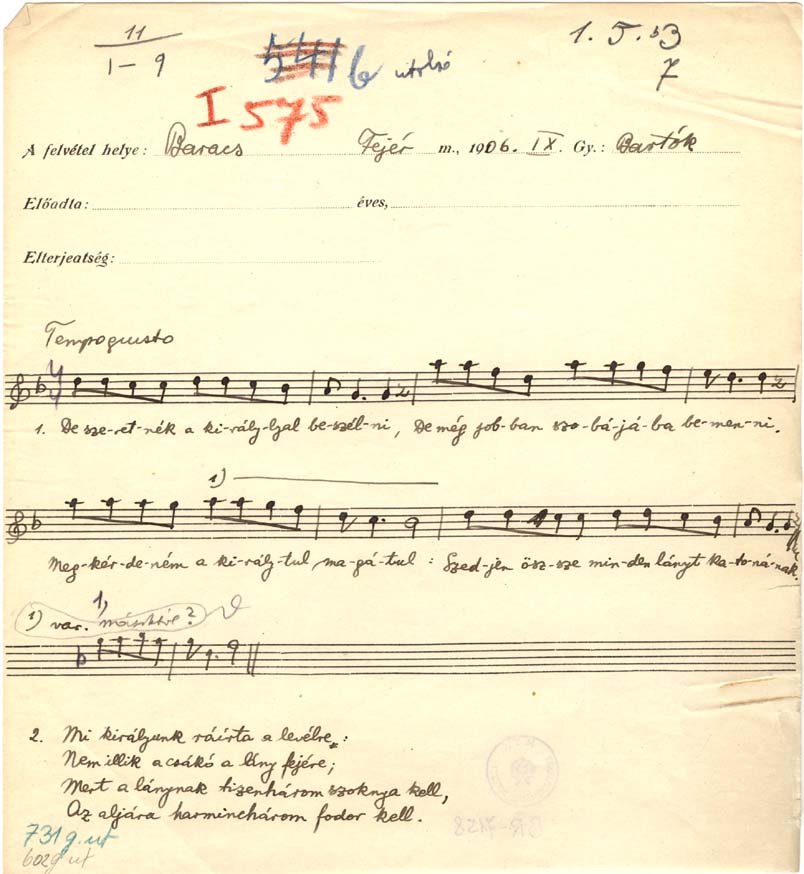 11
1 – 9
541 b utolsó
1. 5. b3
7
I 575
A felvétel helye: Baracs Fejér m., 1906. IX. Gy.: Bartók
Előadta: éves,
Elterjeatség:
Tempogiusto
1. De sze-ret-nék a ki-rály-lyal be-szél-ni, De még job-ban szo-bá-já-ba be-men-ni.
1)
Meg-kér-de-ném a ki-rály-tul ma-gá-tul: Szed-jen ösz-sze min-den lányt ka-to-ná-nak.
1,
1) var.
2. Mi királyunk ráírta a levélre:
Nem illik a csákó a lány fejére;
Mert a lánynak tizenhárom szoknya kell,
Az aljára harminchárom fodor kell.
731 g. ut
602 g ut
BR-7158